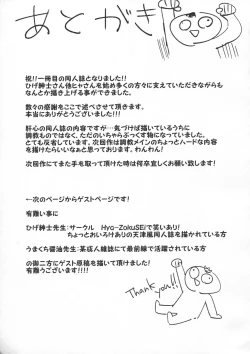 あとがき
祝!!一冊目の同人誌となりました!!
ひげ紳士さん他ヒャさんを始め多くの方々に支えていただきながらも
なんとか描き上げる事ができました。
数々の感謝をここで述べさせて頂きます。
本当にありがとうございました!!!
肝心の同人誌の内容ですが…気づけば描いているうちに
調教ものではなく、ただのらぶちゅっぷくす物になっていました。
とても反省しています。次回作は調教メインのちょっとハードな内容
を描けたらいいなぁと思っております。わんわん!
次回作にてまた手を取って頂けた時は何卒宜しくお願い致します!
←次のページからゲストページです!
有難い事に
ひげ紳士先生:サークル Hyo-ZokuSEiで笑いあり!
ちょっとおいろけありの天津風同人誌を描かれている方
うまくち醤油先生:某成人雑誌にて最前線で活躍されている方
の御二方にゲスト原稿を描いて頂けました!
有難うございます!!!!
Thank you!!